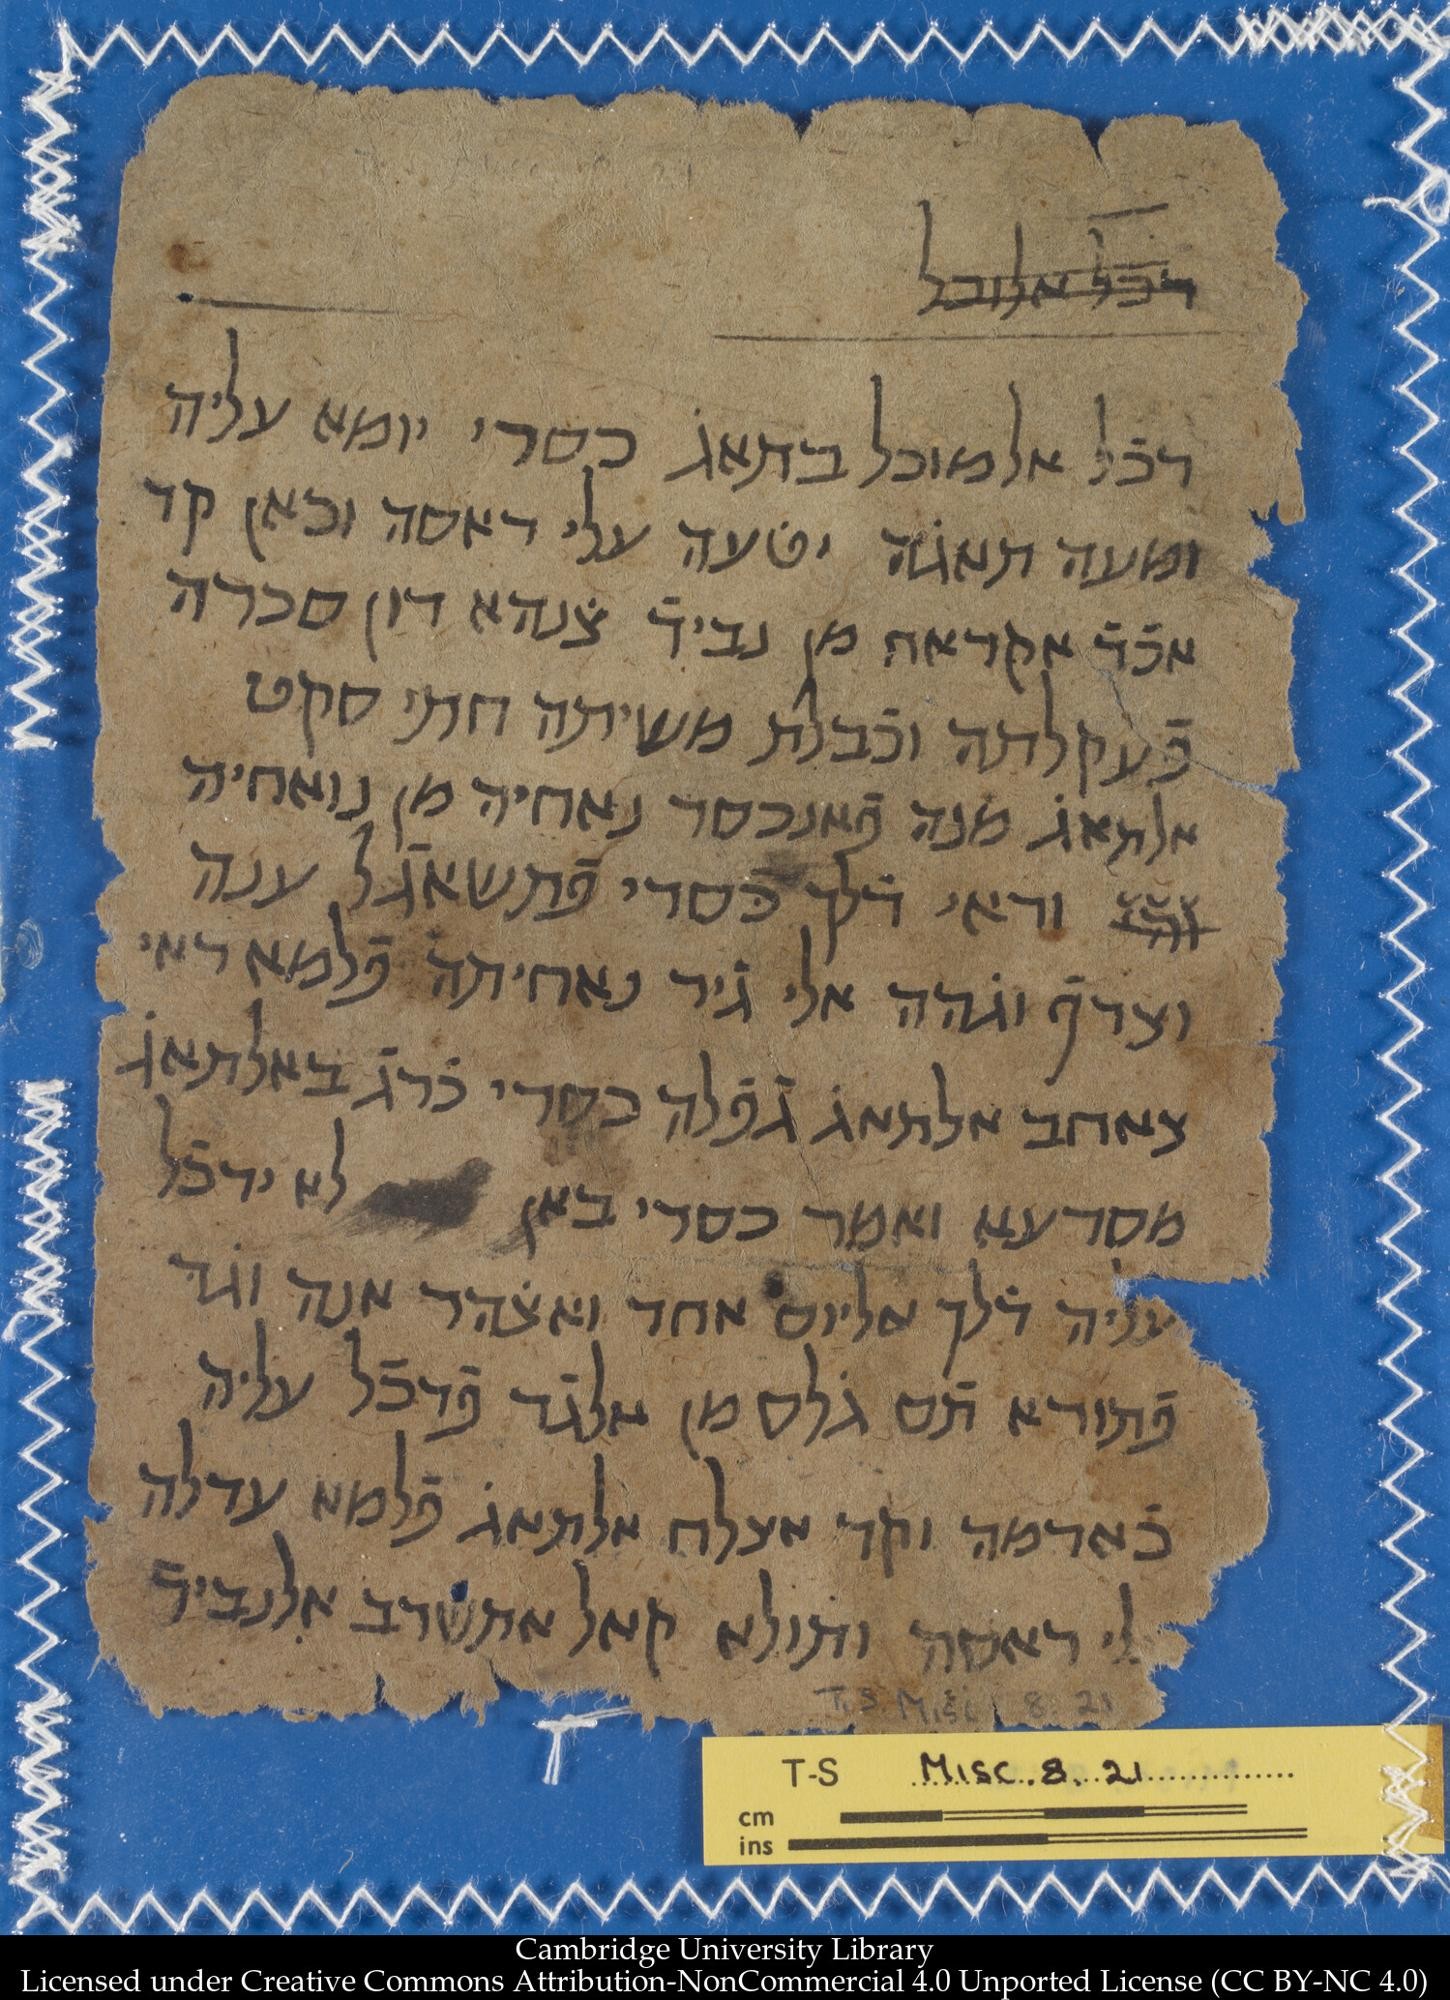 דכ̇ל אלמוכל בתאג̇ כסרי יומא עליה
ומעה תאג̇ה יצ̇עה עלי ראסה וכאן קד
אכ̇ד̇ אקראח מן נביד̇ צ̇נהא דון סכרה
פ̇עקלתה וכ̇בלת משיתה חתי סקט
אלתאג̇ מנה פ̇אנכסר נאחיה מן נואחיה
וראי ד̇לך כסרי פ̇תשאג̇ל ענה
וצרף̇ וג̇הה אלי ג̇יר נאחיתה פ̇למא ראי
צאחב אלתאג̇ ג̇פ̇לה כסרי כ̇רג̇ באלתאג̇
מסרעא ואמר כסרי באן לא ידכ̇ל
עליה ד̇לך אליום אחד ואצ̇הר אנה וג̇ד
פ̇תורא ת̇ם ג̇לס מן אלג̇ד פ̇דכ̇ל עליה
כ̇אדמה וקד אצלח אלתאג̇ פ̇למא עדלה
ראסה ותולא קאל אתשרב אלנביד̇
T.S. Misc 8. 21
T-S Misc. 8. 21
cm
ins
Cambridge University Library
Licensed under Creative Commons Attribution-NonCommercial 4.0 Unported License (CC BY-NC 4.0)